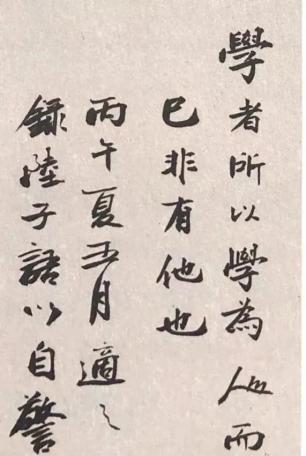 學者所以學為人而
已非有他也
丙午夏五月適之
錄陸子語以自警